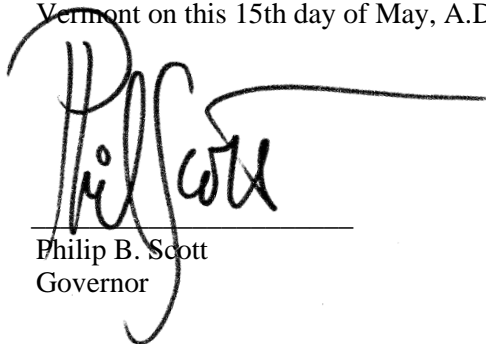 Vermont on this 15th day of May, A.D
Phil Scott
Philip B. Scott
Governor